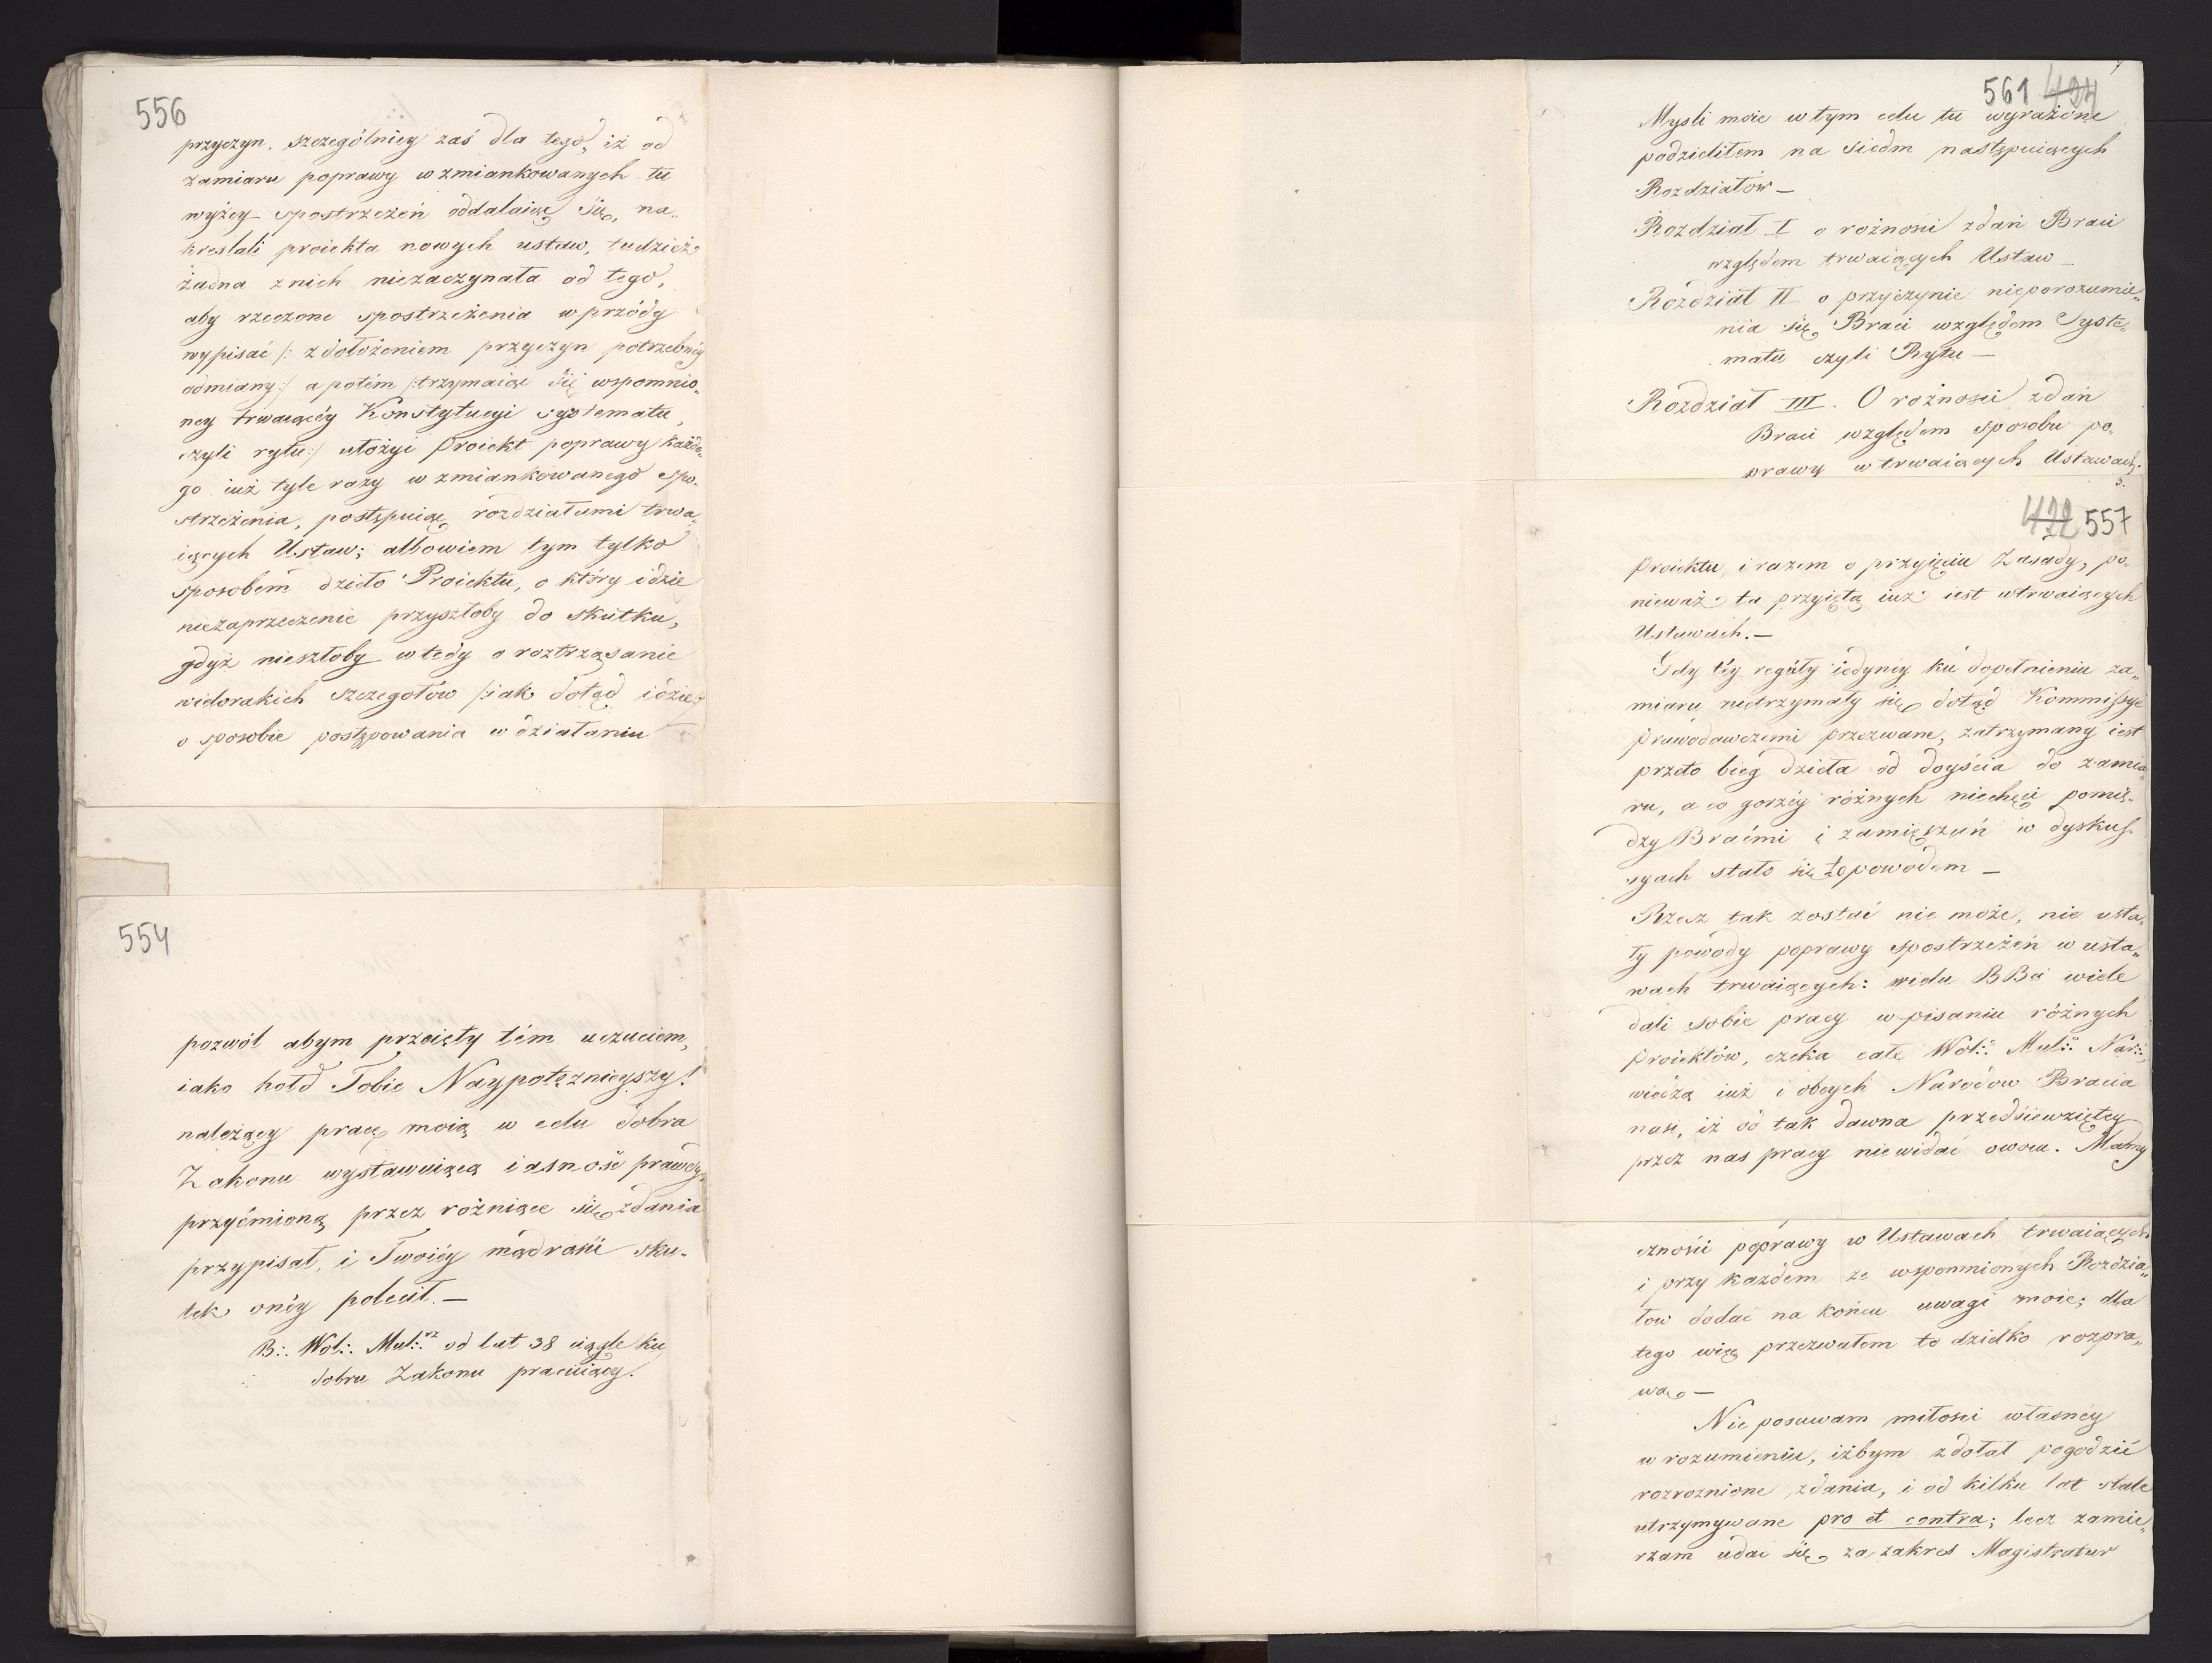 556
przyczyn, szczególniey zaś dla tego, iż od
zamiaru poprawy wzmiankowanych tu
wyżey spostrzeżeń oddalaiąc się, na„
kreslali proiekta nowych ustaw, tudzież
żadna znich niezaczynała od tego,
aby rzeczone spostrzeżenia wprzódy
wypisać /: zdołożeniem przyczyn potrzebney
odmiany :/ a potém /:trzymaiąc się wspomnio„
ney trwaiącéy Konstytucyi systematu,
czyli rytu :/ ułożyć Proiekt poprawy każde„
go iuż tyle razy wzmiankowanego spo„
strzeżenia, postępuiąc rozdziałami trwa„
iących Ustaw; albowiem tym tylko
sposobem dzieło Proiektu, o który idzie
niezaprzeczenie przyszłoby do skutku,
gdyż nieszłoby wtedy o roztrząsanie
wielorakich szczegołów /:iak dotąd idzie:/
o sposobie postępowania w działaniu
554
pozwól abym przeięty tém uczuciem,
iako hołd Tobie Naypotężnieyszy!
należący pracę moią w celu dobra
Zakonu wystawuiącą iasność prawdy,
przyćmioną przez rożniące się zdania
przypisał, i Twoiéy mądrości sku„
tek onéy polecił. —
B∴ Wol∴ Mul∴ rz od lat 38 ciągle ku
dobru Zakonu pracuiący.
561 424
Mysli moie wtym celu tu wyrażone
podzieliłem na siedm następuiących
Rozdziałów —
Rozdział I o rożności zdań Braci
względem trwaiących Ustaw —
Rozdział II o przyczynie nieporozumie„
nia się Braci względem Syste„
matu czyli Rytu —
Rozdział III. O rożności zdań
Braci względem sposobu po„
prawy w trwaiących Ustawach.
422 557
Proiektu, i razem o przyięciu Zasady, po„
nieważ ta przyiętą iuż iest wtrwaiących
Ustawach. —
Gdy téy reguły iedyney ku dopełnieniu za„
miaru nietrzymały się dotąd Kommissye
Prawodawczemi przezwane, zatrzymany iest
przeto bieg dzieła od doyścia do zamia„
ru, a co gorzéy różnych niechęci pomię„
dzy Braćmi i zamięszań w dyskus„
syach stało się to powodem —
Rzecz tak zostać nie może, nie usta„
ły powody poprawy spostrzeżeń w usta„
wach trwaiących: wielu BBci wiele
dali sobie pracy w pisaniu różnych
Proiektów, czeka całe Wol∴ Mul∴ Nar∴,
wiedzą iuż i obcych Narodow Bracia
nasi, iż od tak dawna przedsiewziętey
przez nas pracy niewidać owocu. Mamy
czności poprawy w Ustawach trwaiących
i przy każdem ze wspomnionych Rozdzia„
łow dodać na końcu uwagi moie; dla
tego więc przezwałem to dziełko rozpra„
wą. —
Nie posuwam miłości własnéy
w rozumieniu, iżbym zdołał pogodzić
rozrożnione zdania, i od kilku lat stale
utrzymywane pro et contra; lecz zamie„
rzam udać się za zakres Magistratur